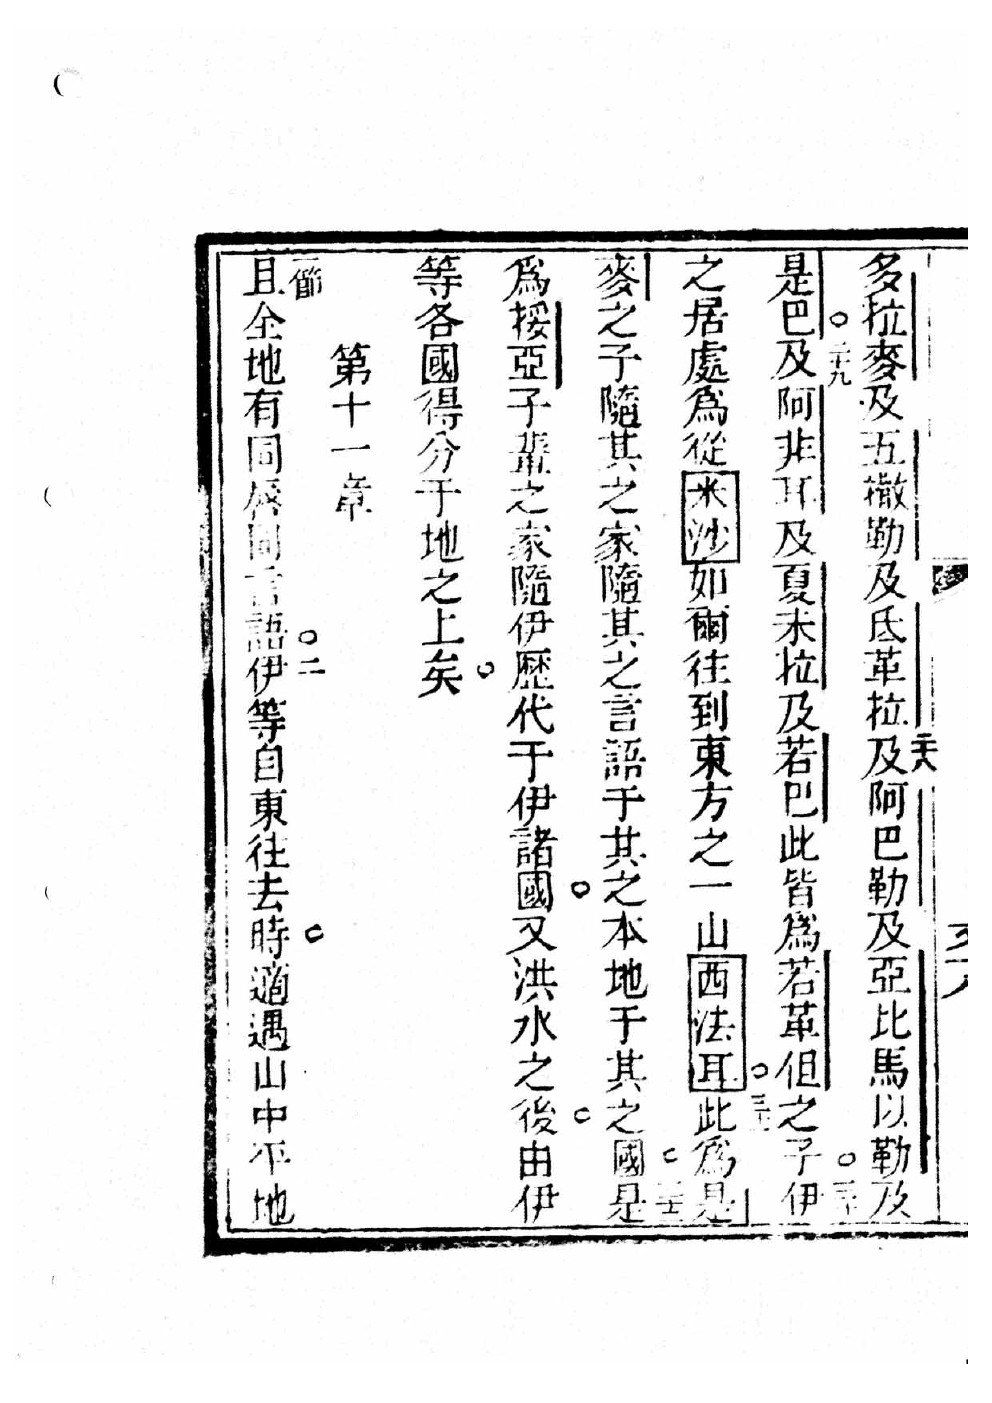 多拉麥及五撒勒及氐革拉二十八及阿巴勒及亞比馬以勒及二十九
是巴。及阿非耳及夏未拉及若巴此皆爲若革但之子。三十伊
之居處爲從米沙如爾往到東方之一山西法耳。三十一此爲是
麥之子隨其之家隨其之言語于其之本地于其之國。三十二是
爲挼亞子輩之家隨伊歷代于伊諸國。又洪水之後。由伊
等各國得分于地之上矣。
第十一章
一節且全地有同唇同言語。二伊等自東往去時。適遇山中平地